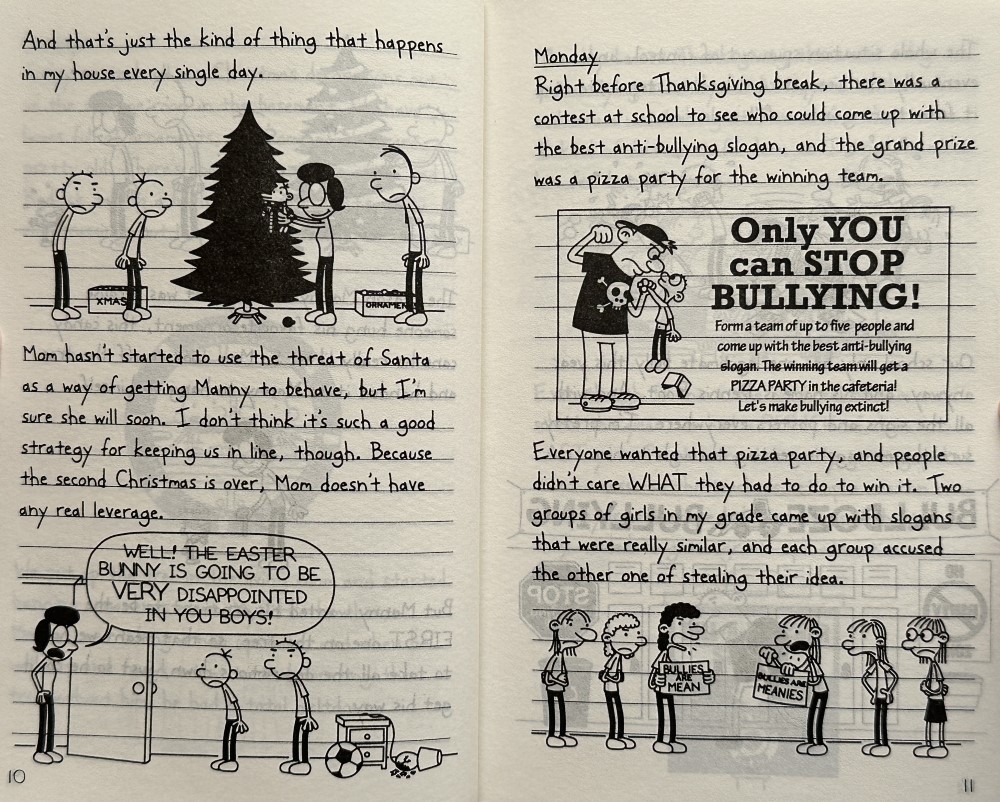 And that's just the kind of thing that happens
in my house every single day.
XMAS
ORNAMEN
Mom hasn't started to use the threat of Santa
as a way of getting Manny to behave, but I'm
sure she will soon. I don't think it's such a good
strategy for keeping us in line, though. Because
the second Christmas is over, Mom doesn't have
any real leverage.
WELL! THE EASTER
BUNNY IS GOING TO BE
VERY DISAPPOINTED
IN YOU BOYS!
10
Monday
Right before Thanksgiving break, there was a
contest at school to see who could come up with
the best anti-bullying slogan, and the grand prize
was a pizza party for the winning team.
Only YOU
can STOP
BULLYING!
Form a team of up to five people and
come up with the best anti-bullying
slogan. The winning team will get a
PIZZA PARTY in the cafeteria!
Let's make bullying extinct!
Everyone wanted that pizza party, and people
didn't care WHAT they had to do to win it. Two
groups of girls in my grade came up with slogans
that were really similar, and each group accused
the other one of stealing their idea.
BULLIES
ARE
MEAN
BULLIES ARE
MEANIES
11